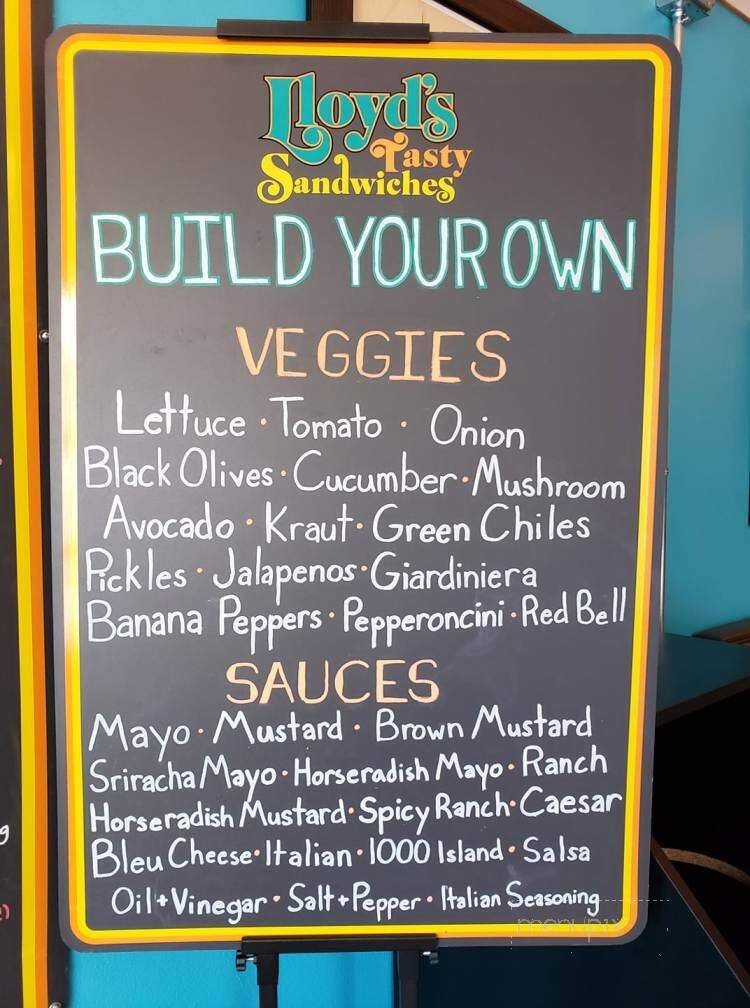 Lloyd's
Tasty
Sandwiches
BUILD YOUR OWN
VEGGIES
Lettuce · Tomato · Onion
Black Olives · Cucumber · Mushroom
Avocado · Kraut · Green Chiles
Pickles · Jalapenos · Giardiniera
Banana Peppers · Pepperoncini · Red Bell
SAUCES
Mayo · Mustard · Brown Mustard
Sriracha Mayo · Horseradish Mayo · Ranch
Horseradish Mustard · Spicy Ranch · Caesar
Bleu Cheese · Italian · 1000 Island · Salsa
Oil + Vinegar · Salt + Pepper · Italian Seasoning
menupix